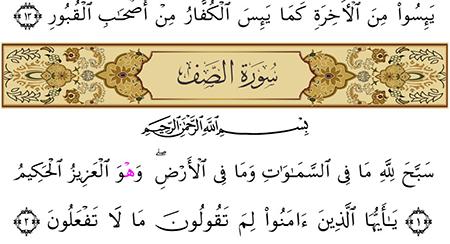 يَئِسُوا۟ مِنَ ٱلْأَخِرَةِ كَمَا يَئِسَ ٱلْكُفَّارُ مِنْ أَصْحَٰبِ ٱلْقُبُورِ ١٣
سُورَةُ الصَّفِّ
بِسْمِ ٱللَّهِ ٱلرَّحْمَٰنِ ٱلرَّحِيمِ
سَبَّحَ لِلَّهِ مَا فِى ٱلسَّمَٰوَٰتِ وَمَا فِى ٱلْأَرْضِ ۖ وَهُوَ ٱلْعَزِيزُ ٱلْحَكِيمُ
١ يَٰٓأَيُّهَا ٱلَّذِينَ ءَامَنُوا۟ لِمَ تَقُولُونَ مَا لَا تَفْعَلُونَ ٢